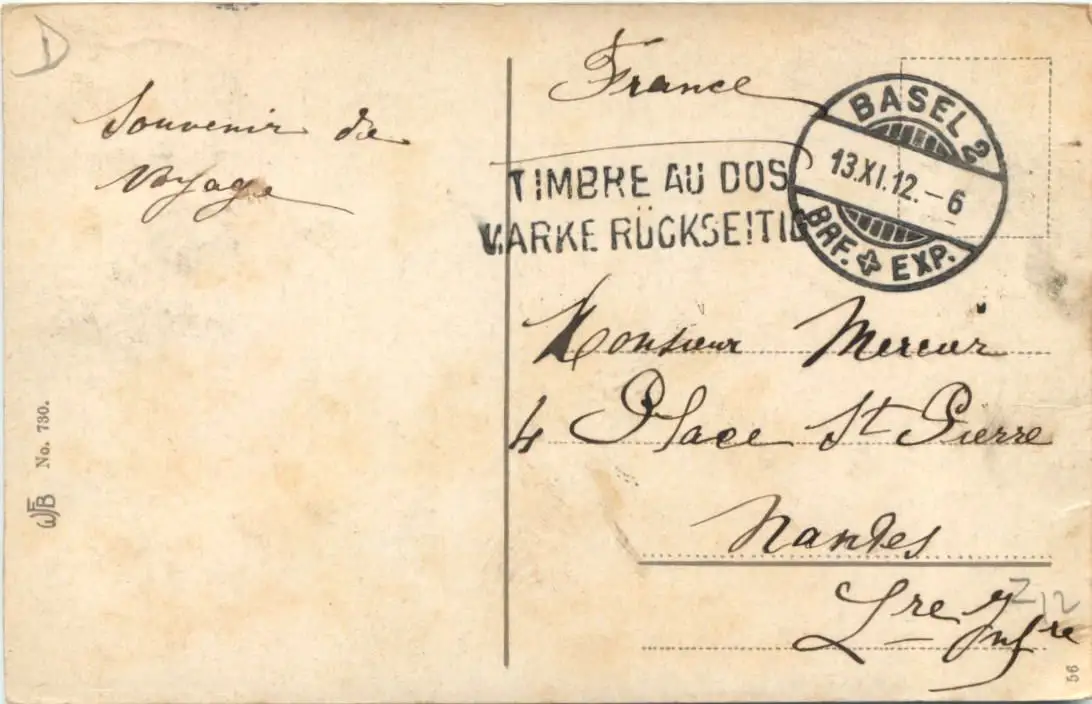 D
Souvenir de
Voyage
WFB No. 730.
France
TIMBRE AU DOS
MARKE RÜCKSEITIG
BASEL 2
13.XI.12.-6
BRF. EXP.
Monsieur Mercier
4 Place St Pierre
Nantes
Lre Infre
Z 12
56